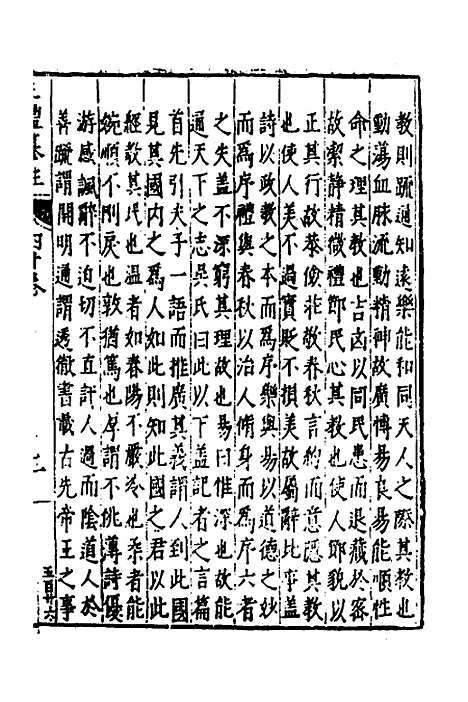 教則疏通知遠樂能和同天人之際其教也
動蕩血脉流動精神故廣博易良易能順性
命之理其教也吉凶以同民患而退藏於密
故潔静精微禮節民心其教也使人節貌以
正其行故恭儉莊敬春秋言約而意隱其教
也使人美不過實貶不損美故屬辭比事蓋
詩以政教之本而為序樂與易以道德之妙
而為序禮與春秋以治人脩身而為序六者
之失蓋不深窮其理故也易曰惟深也故能
通天下之志吳氏曰此以下蓋記者之言篇
首先引夫子一語而推廣其義謂人到此國
見其國内之為人如此則知此國之君以此
經教其民也温者如春陽不嚴冷也柔者能
婉順不剛戾也敦猶篤也厚謂不佻薄詩優
游感諷辭不迫切不直訐人過而陰道人於
善疏謂開明通謂透徹書載古先帝王之事
三禮纂註
四十卷